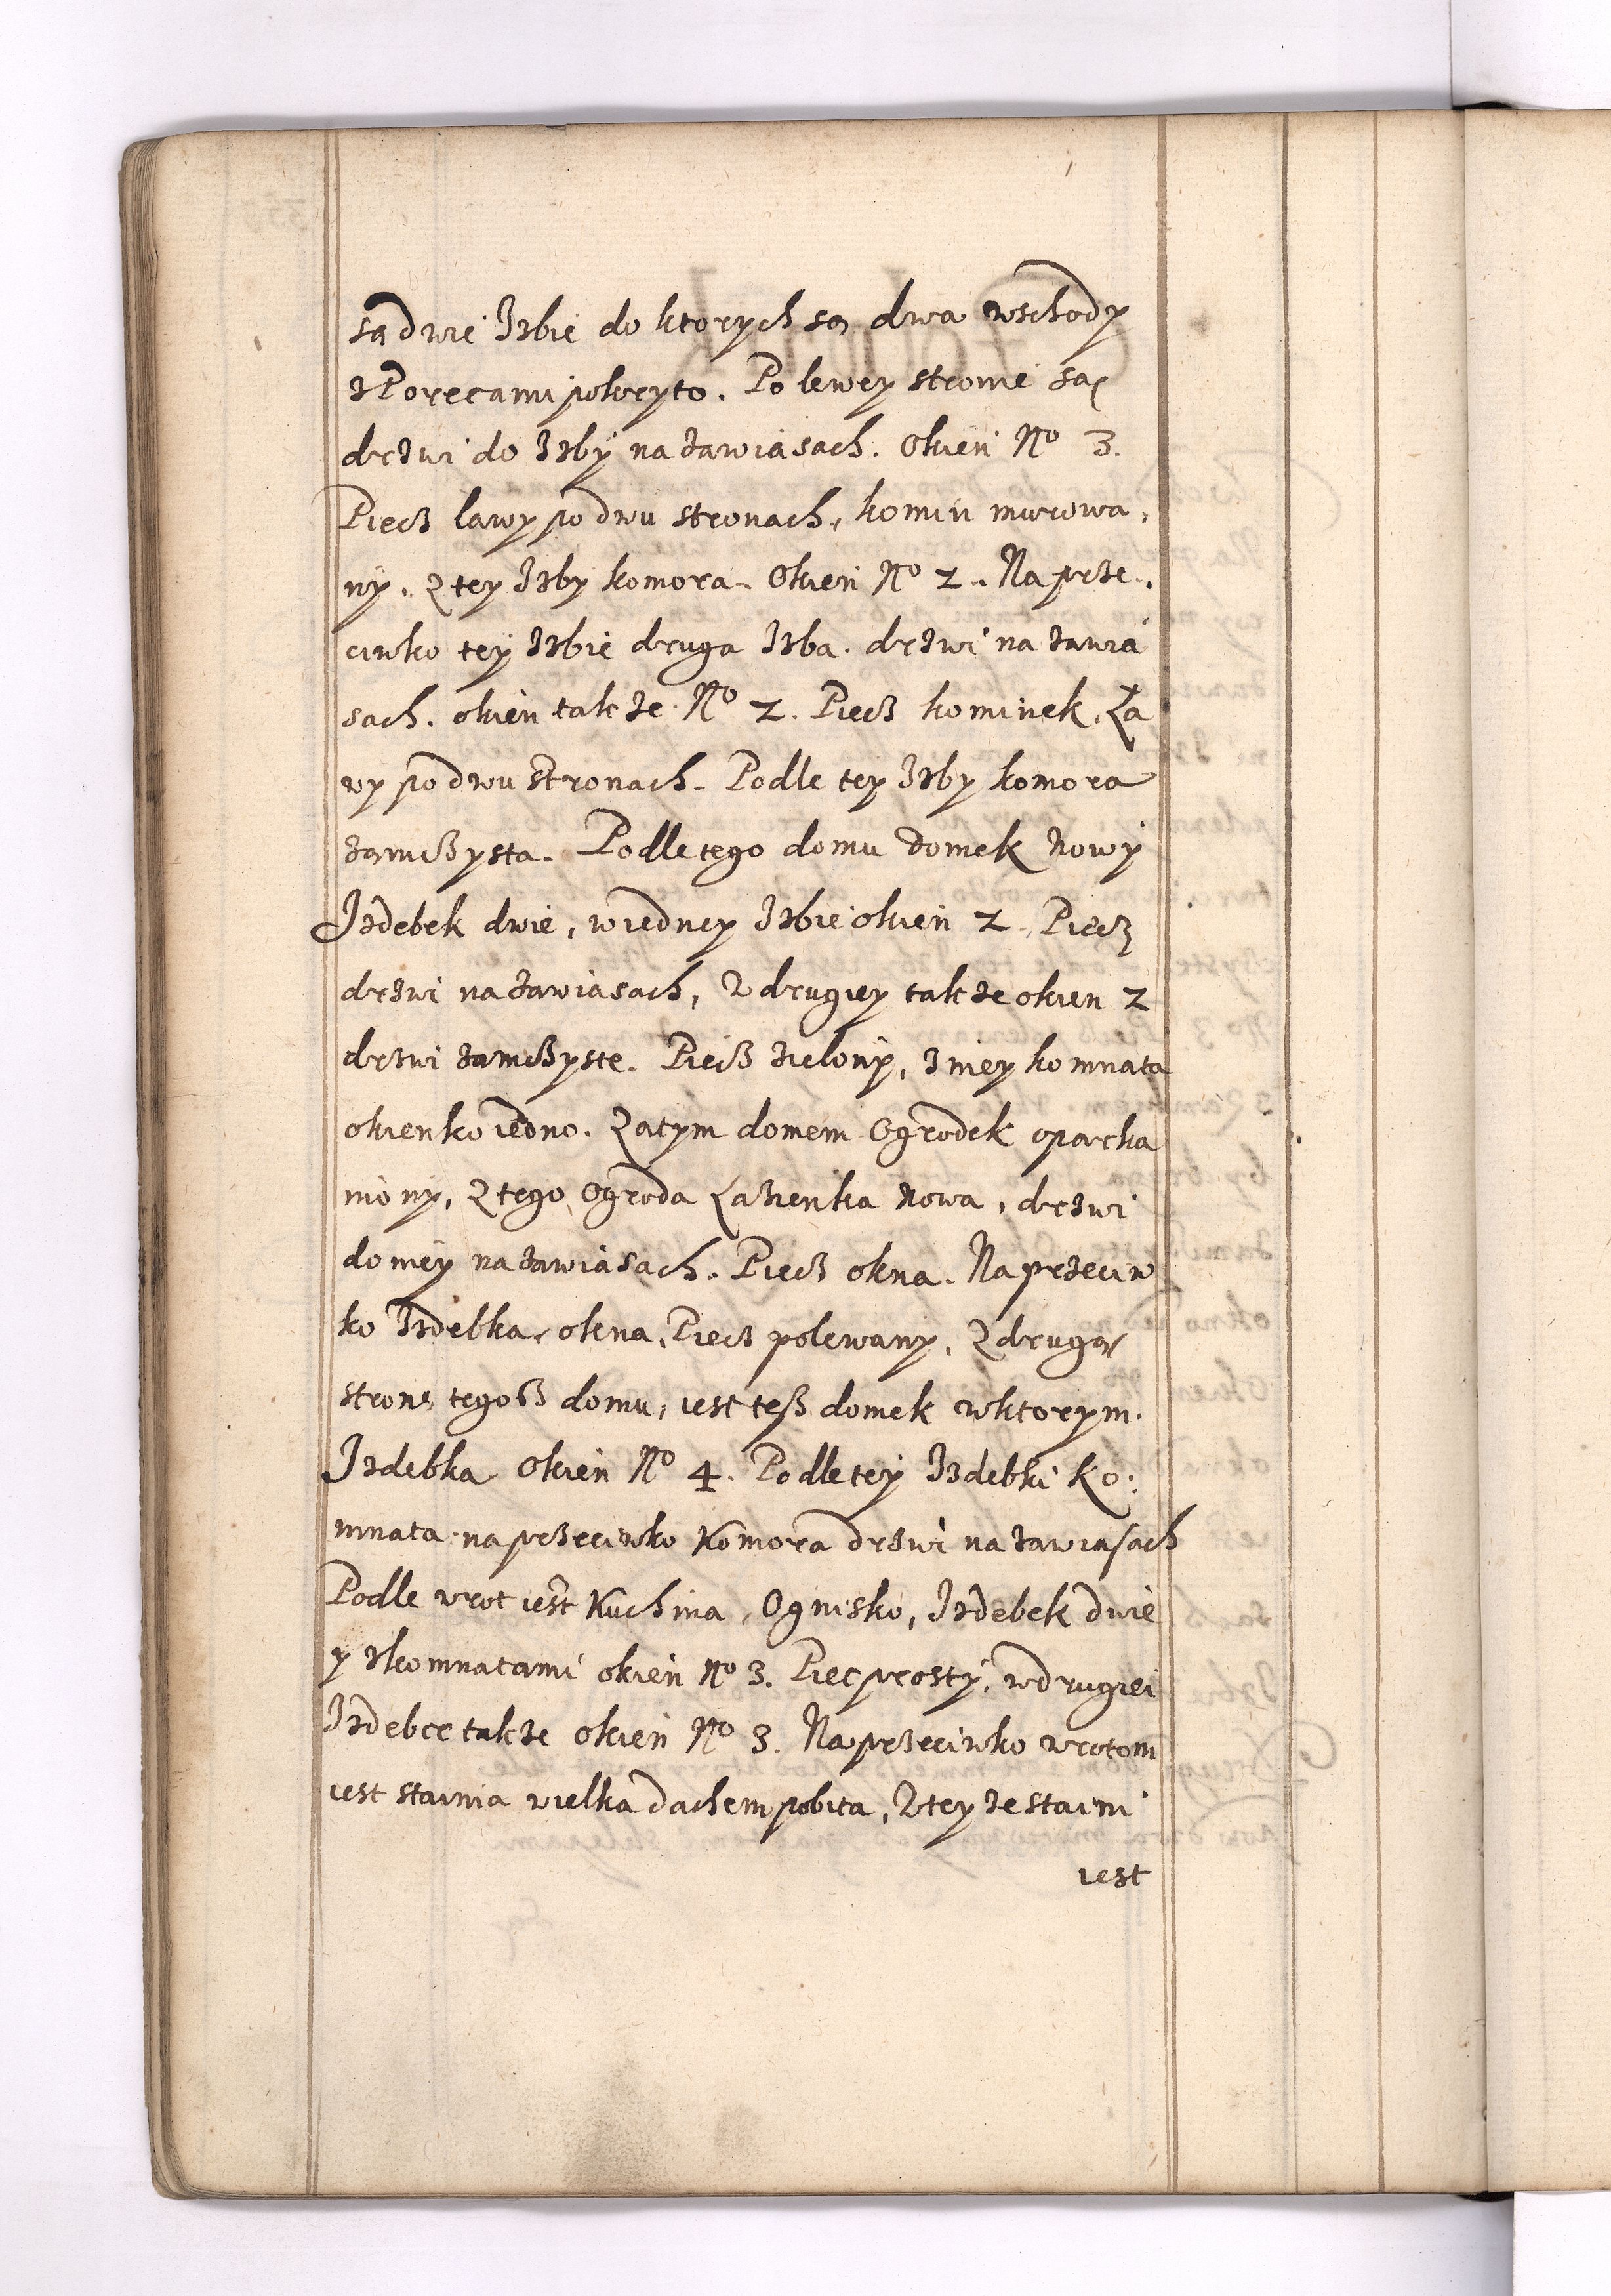 są dwie Izbie do ktorych są dwa wschody
z Porecami pokryto. Po lewey stronie są
drzwi do Izby na zawiasach. Okien No 3.
Piecz lawy po dwu stronach, komin murowa,
ny. Z tey Izby komora. Okien No 2. Na prze,
ciwko tey Izbie druga Izba. drzwi na zawia
sach. okien takze No 2. Piecz kominek. Ła
wy po dwu stronach. Podle tey Izby komora
zamczysta. Podle tego domu domek Nowy
Izdebek dwie, w iedney Izbie okien 2. Piecz
drzwi na zawiasach, W drugiey takze okien 2
drzwi zamczyste. Piecz zielony, z niey komnata
okienko iedno. Za tym domem Ogrodek oparka
niony, Z tego Ogroda Łazienka Nowa, drzwi
do niey na zawiasach. Piecz okna. Na przeciw
ko Izdebka okna, Piecz polewany, Z drugą
stronę tegosz domu, iest tesz domek w ktorym.
Izdebka Okien No 4. Podle tey Izdebki Ko:
mnata na przeciwko Komora drzwi na zawiasach
Podle wrot iest Kuchnia, Ognisko, Izdebek dwie
y z komnatami okien No 3. Piec prosty, w drugiei
Izdebce takze okien No 3. Na przeciwko wrotom
iest stainia wielka dachem pobita, W teyze staini
iest